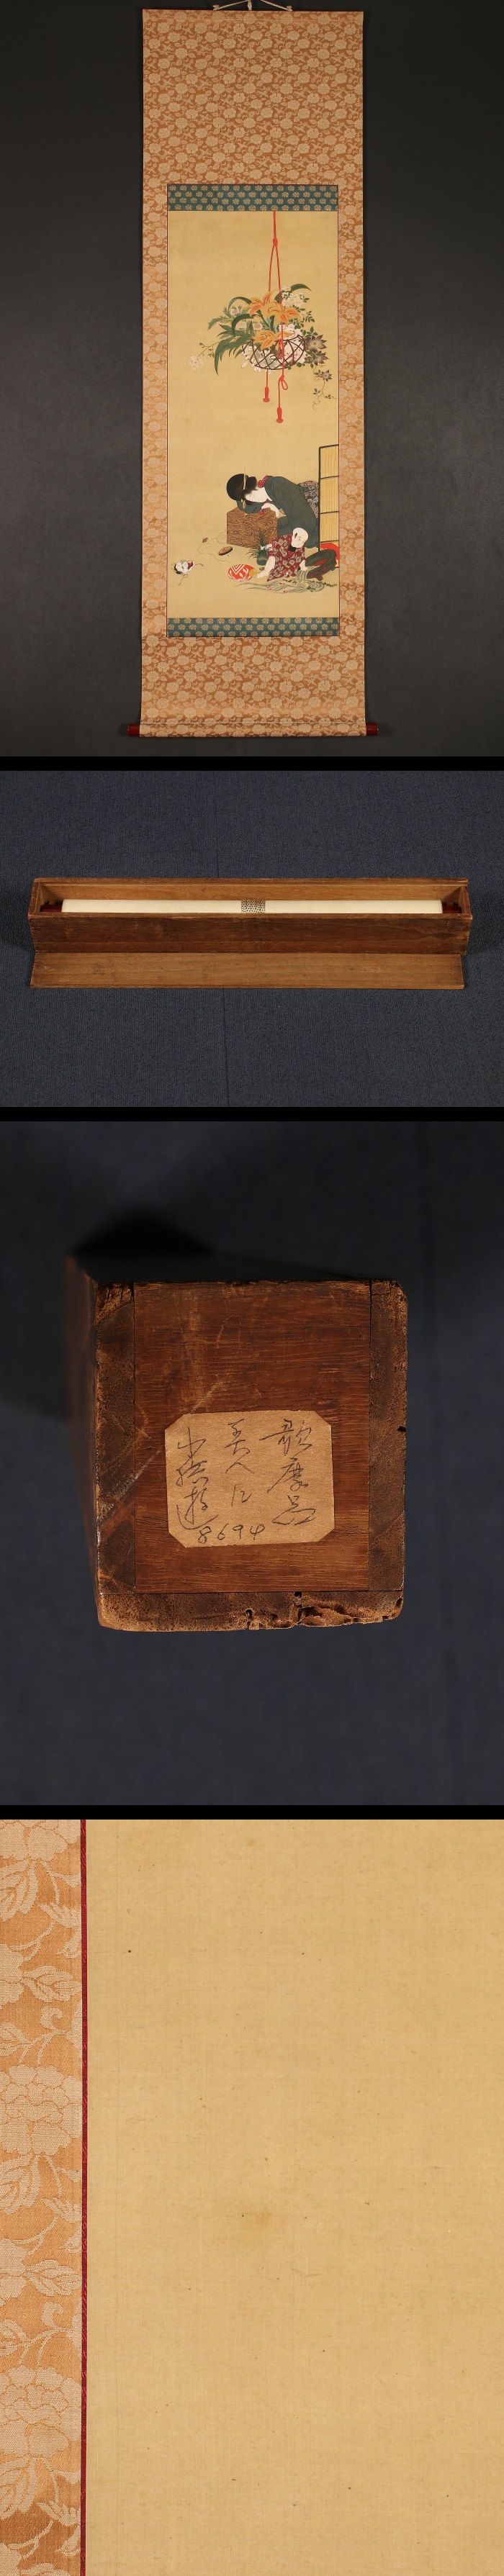 歌麿品
美人に
小供遊
8694